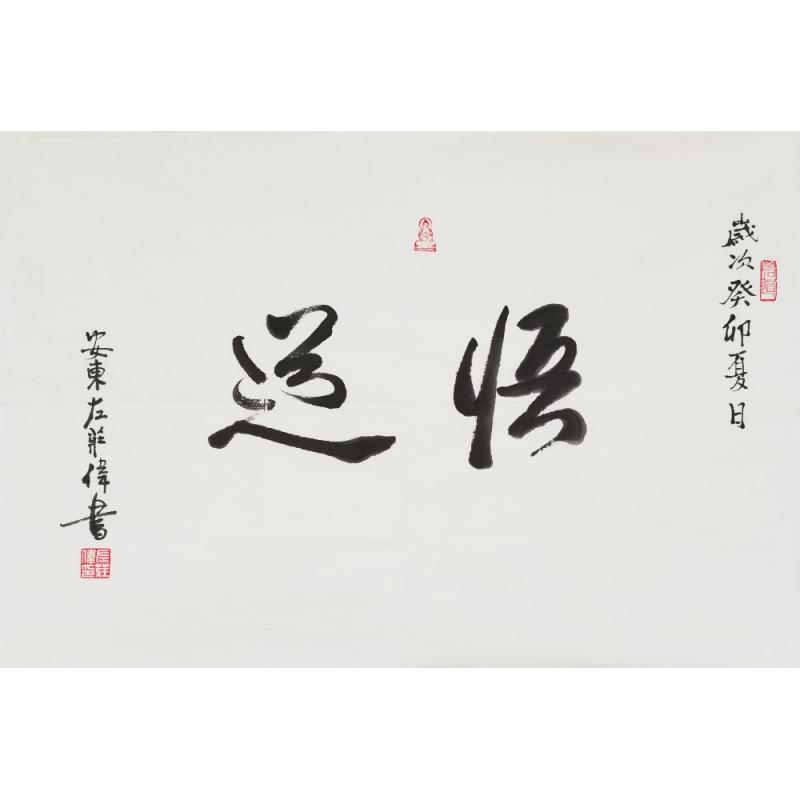 歲次癸卯夏日
悟道
安東左莊偉書